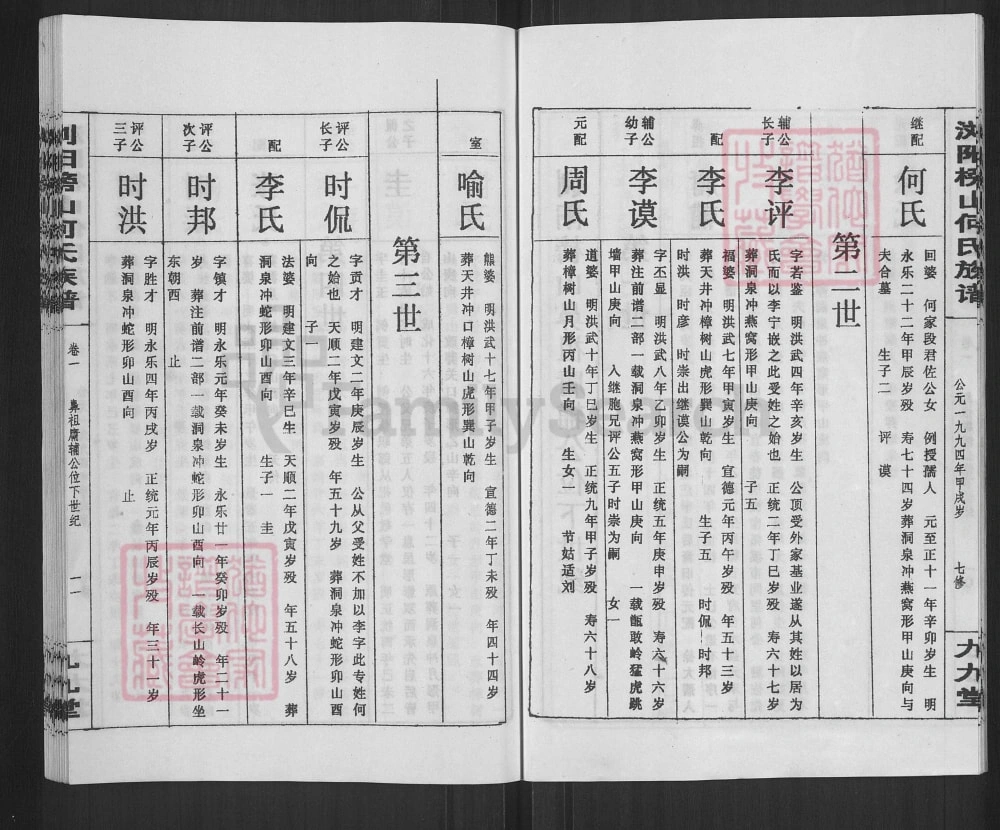 浏阳榜山何氏族谱
公元一九九四年甲戌岁
七修
九九堂
继配
何氏
回婆 何家段君佐公女 例授孺人 元至正十一年辛卯岁生 明
永乐二十二年甲辰岁殁 寿七十四岁葬洞泉冲燕窝形甲山庚向与
夫合墓 生子二 评 谟
第二世
辅公长子
李评
字若鉴 明洪武四年辛亥岁生 公顶受外家基业遂从其姓以居为
氏而以李宁嵌之此受姓之始也 正统二年丁巳岁殁 寿六十七岁
葬洞泉冲燕窝形甲山庚向 子五
配
李氏
福婆 明洪武七年甲寅岁生 宣德元年丙午岁殁 年五十三岁
葬天井冲樟树山虎形巽山乾向 生子五 时侃 时邦
时洪 时彦 时崇出继谟公为嗣
辅公幼子
李谟
字丕显 明洪武八年乙卯岁生 正统五年庚申岁殁 寿六十六岁
葬注前谱二部一载洞泉冲燕窝形甲山庚向 一载甑敢岭猛虎跳
墙甲山庚向 入继胞兄评公五子时崇为嗣 女一
元配
周氏
道婆 明洪武十年丁巳岁生 正统九年甲子岁殁 寿六十八岁
葬樟树山月形丙山壬向 生女一 节姑适刘
室
喻氏
熊婆 明洪武十七年甲子岁生 宣德二年丁未殁 年四十四岁
葬天井冲口樟树山虎形巽山乾向
第三世
评公长子
时侃
字贡才 明建文二年庚辰岁生 公从父受姓不加以李字此专姓何
之始也 天顺二年戊寅岁殁 年五十九岁 葬洞泉冲蛇形卯山酉
向 子一
配
李氏
法婆 明建文三年辛巳生 天顺二年戊寅岁殁 年五十八岁 葬
洞泉冲蛇形卯山酉向 生子一 圭
评公次子
时邦
字镇才 明永乐元年癸未岁生 永乐廿一年癸卯岁殁 年二十一
岁 葬注前谱二部一载洞泉冲蛇形卯山酉向 一载长山岭虎形坐
东朝西 止
评公三子
时洪
字胜才 明永乐四年丙戌岁 正统元年丙辰岁殁 年三十一岁
葬洞泉冲蛇形卯山酉向 止
浏阳榜山何氏族谱
卷一
鼻祖庚辅公位下世纪
一一
九九堂
FamilySearch